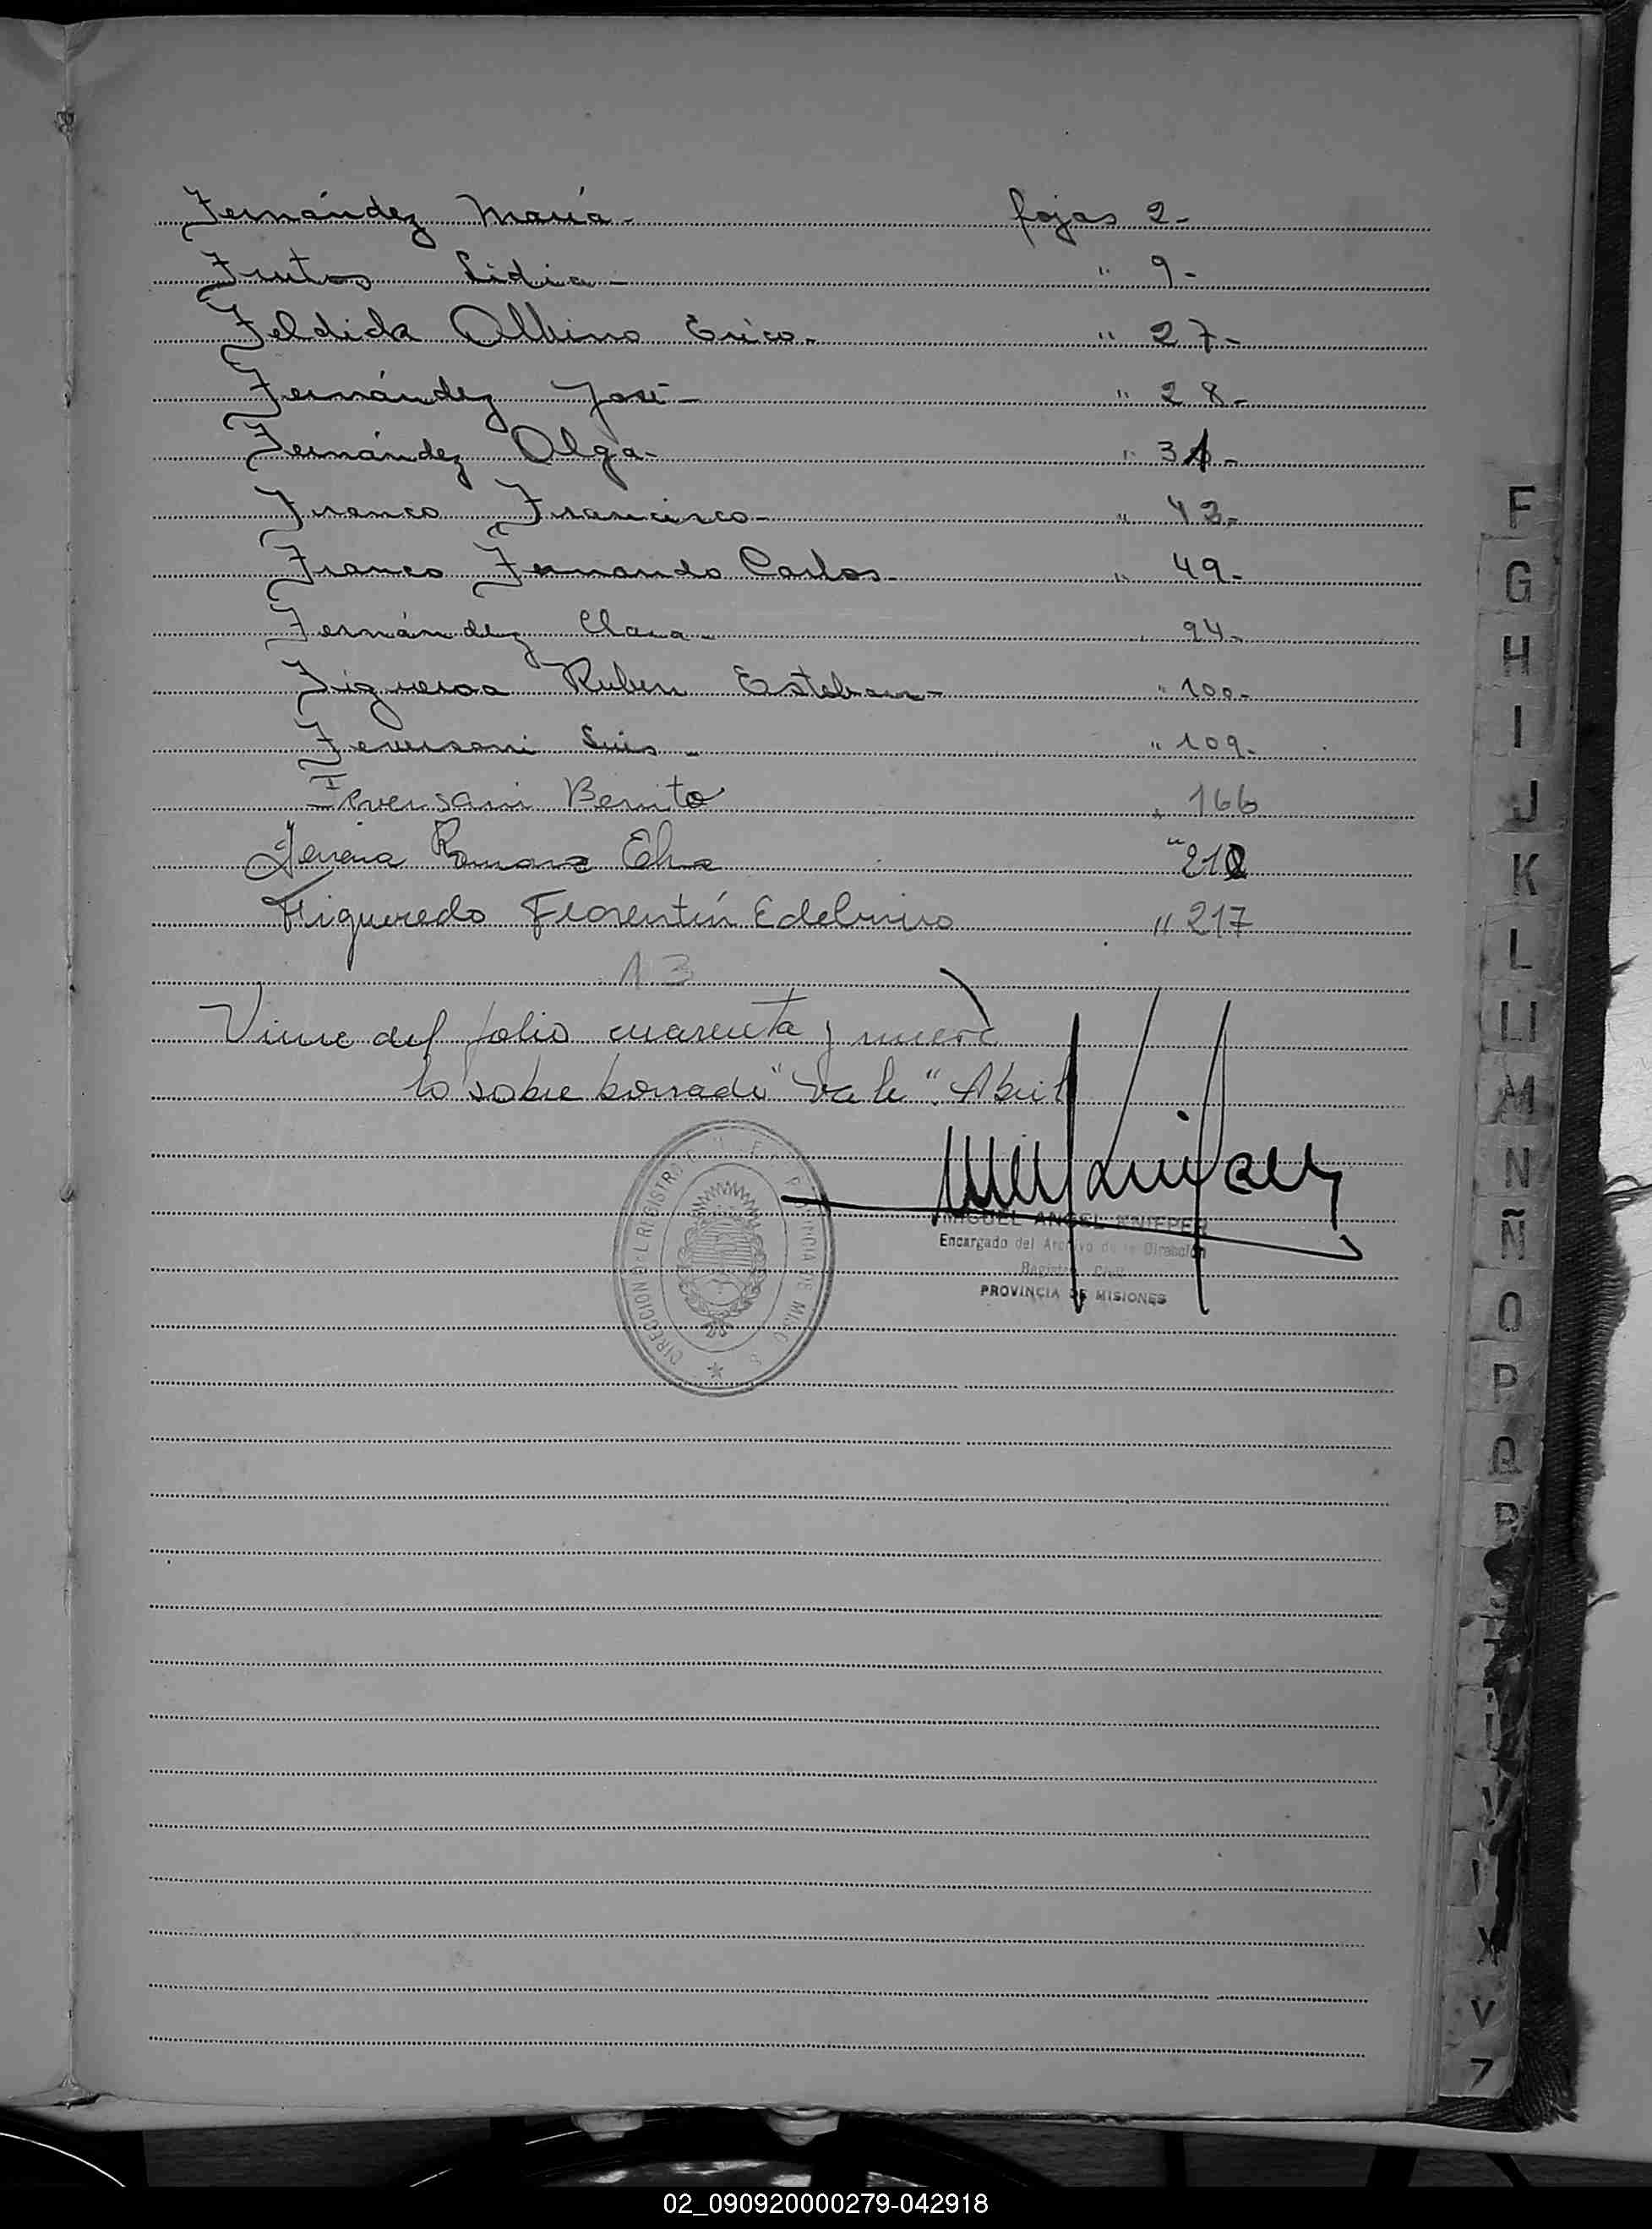 Fernández María - fojas 2-
Frutos Lidia - " 9-
Feldick Albino Erico - " 27-
Fernández José - " 28-
Fernández Olga - " 31-
Franco Francisco - " 42-
Franco Fernando Carlos - " 49-
Fernández Clara - " 94-
Figueroa Ruben Esteban - " 100-
Feversani Luis - " 109-
Feversani Benito " 166
Ramona " 212
Figueredo Florentín Edelmiro " 217
13
Viene del folio cuarenta y nueve
lo sobre borrado "Vale". Abril
DIRECCION DEL REGISTRO
MIGUEL ANGEL KNIEPER
Encargado del Archivo de la Dirección
Registro Civil
PROVINCIA DE MISIONES
F
G
H
I
J
K
L
LL
M
N
Ñ
O
P
Q
R
V
X
02_090920000279-042918